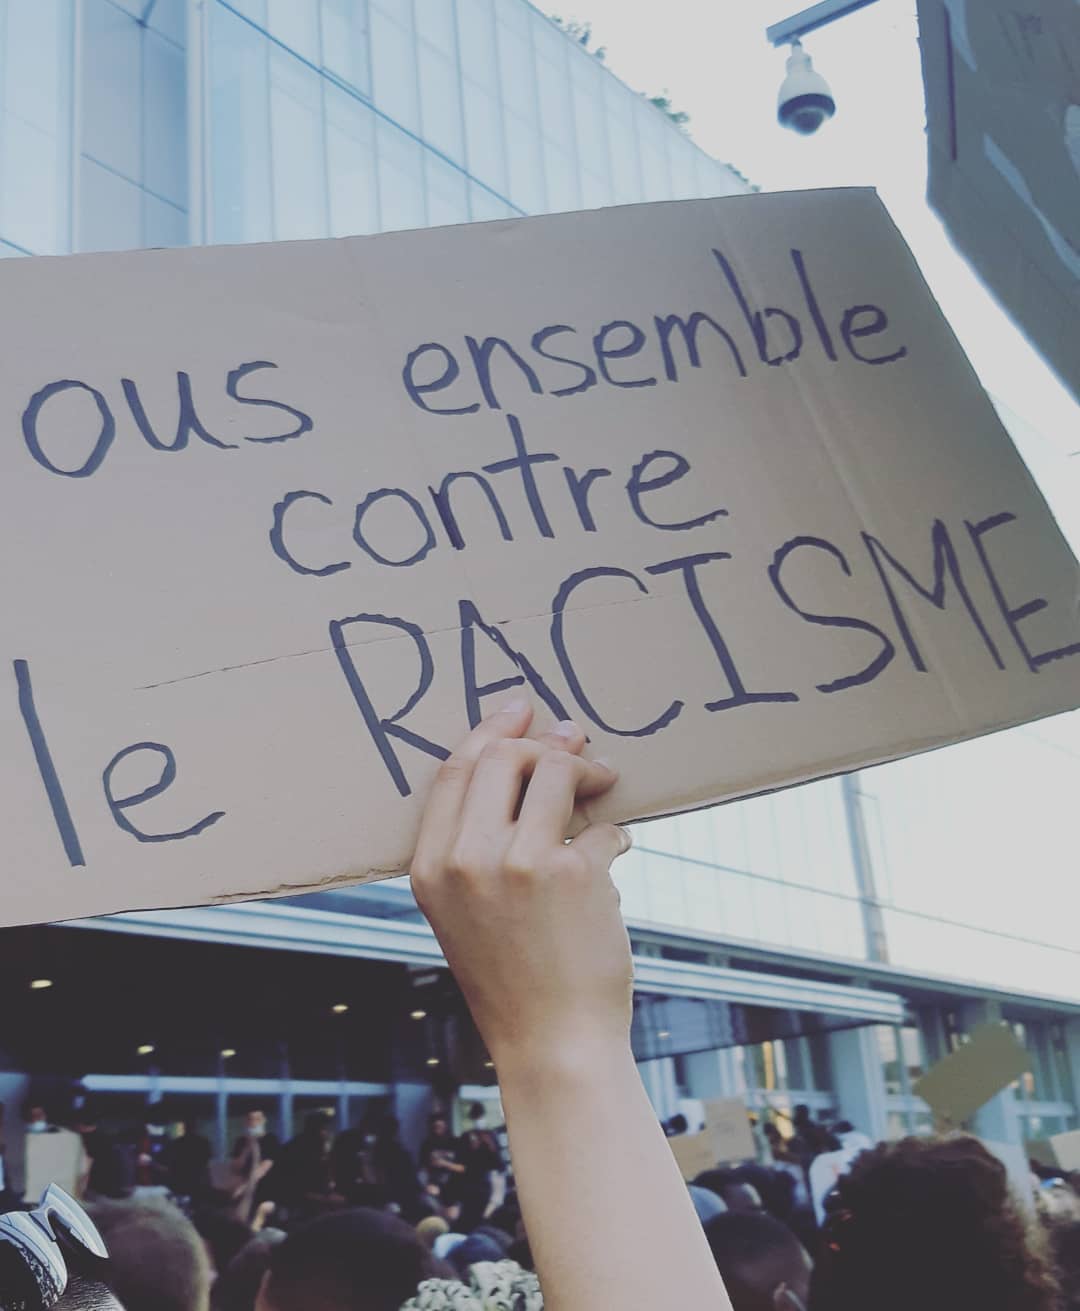 ous ensemble
contre
le RACISME